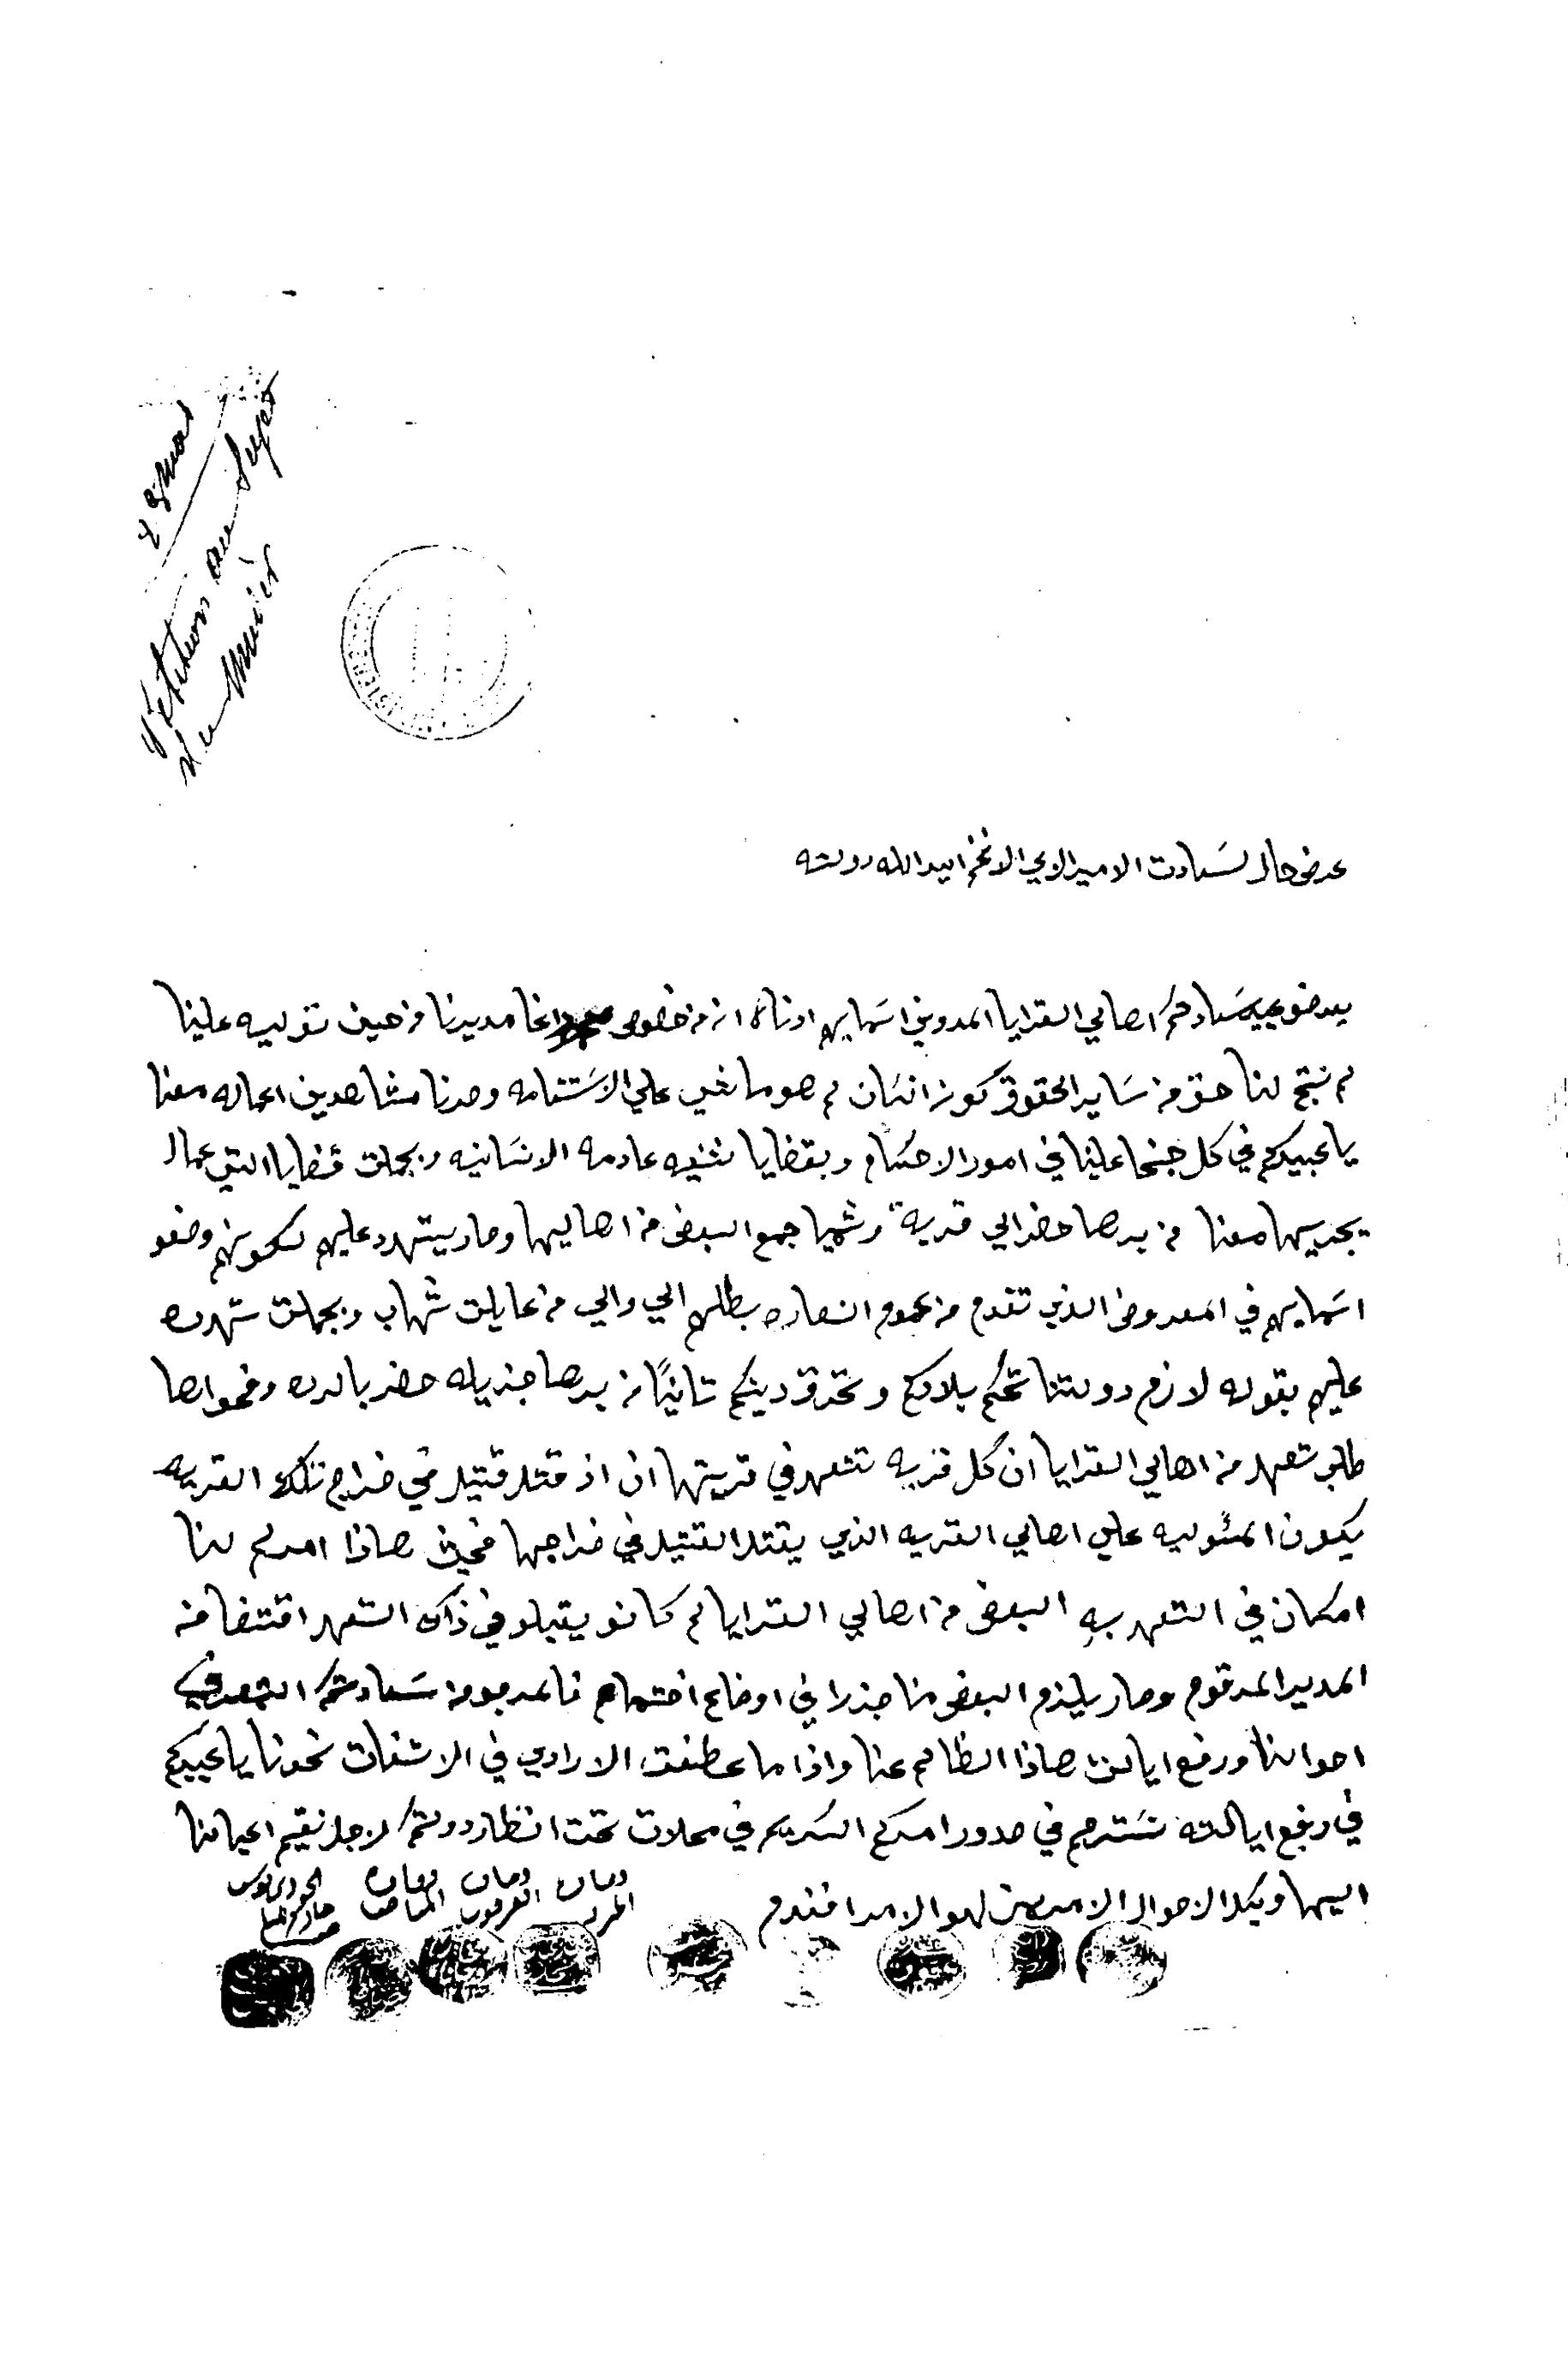 2 8 mai
Pétition au sujet
du Mudir
عرض حال لسعادت الاميرالاي الافخم ايد الله دولته
يعرضو عبيد سعادتكم اهالي القرايا المدوين اسمايهم ادناه ان من خصوص اغا مديرنا من حين توليه علينا
لم نتج لنا حق من ساير الحقوق كونه انسان لم هو ماشي علي الاستقامه وصرنا مشاهدين اعماله معنا
يا عبيدكم في كل علينا في امور الاحكام وبقضايا عادمه الانسانيه وبجملت قضايا التي عمال
يجريها معنا من بعدها حضر الي قرية رشميا جمع البعض من اهاليها وصار يتهدد عليهم لكونهم وضعو
اسمايهم في المعروض الذي تقدم من عموم النصاره بطلبهم الي والي من عايلت شهاب وبجملت تهدده
عليهم بقوله لازم دولتنا تحكم بلادكم وتحرق دينكم تانيًا من بعدها جنديله حضر بالدرك وفحواها
طالب تعهد من اهالي القرايا ان كل قريه تتعهد في قريتها ان اذ قتل قتيل في خراج تلك القريه
يكون المسئوليه علي اهالي القريه الذي يقتل القتيل في خراجها فحيث هاذا امر لم لنا
امكان في التعهد به البعض من اهالي القرايا لم كانو يقبلو في ذاك التعهد اقتضا من
المدير المرقوم وصار يلزم البعض منا جبرا في اوضاع اختمامهم فالمرجو من سعادتكم
احوالنا ورفع ايالت هاذا الظالم عنا واذا ما عطفت الارادي في الاشفات نحونا يا عبيدكم
في رفع ايالته نسترحم في صدور امركم الكريم في محلات تحت انظار دولتكم لاجل نقيم اعيالنا
اليها وبكل الاحوال الامر من لهو الامر افندم